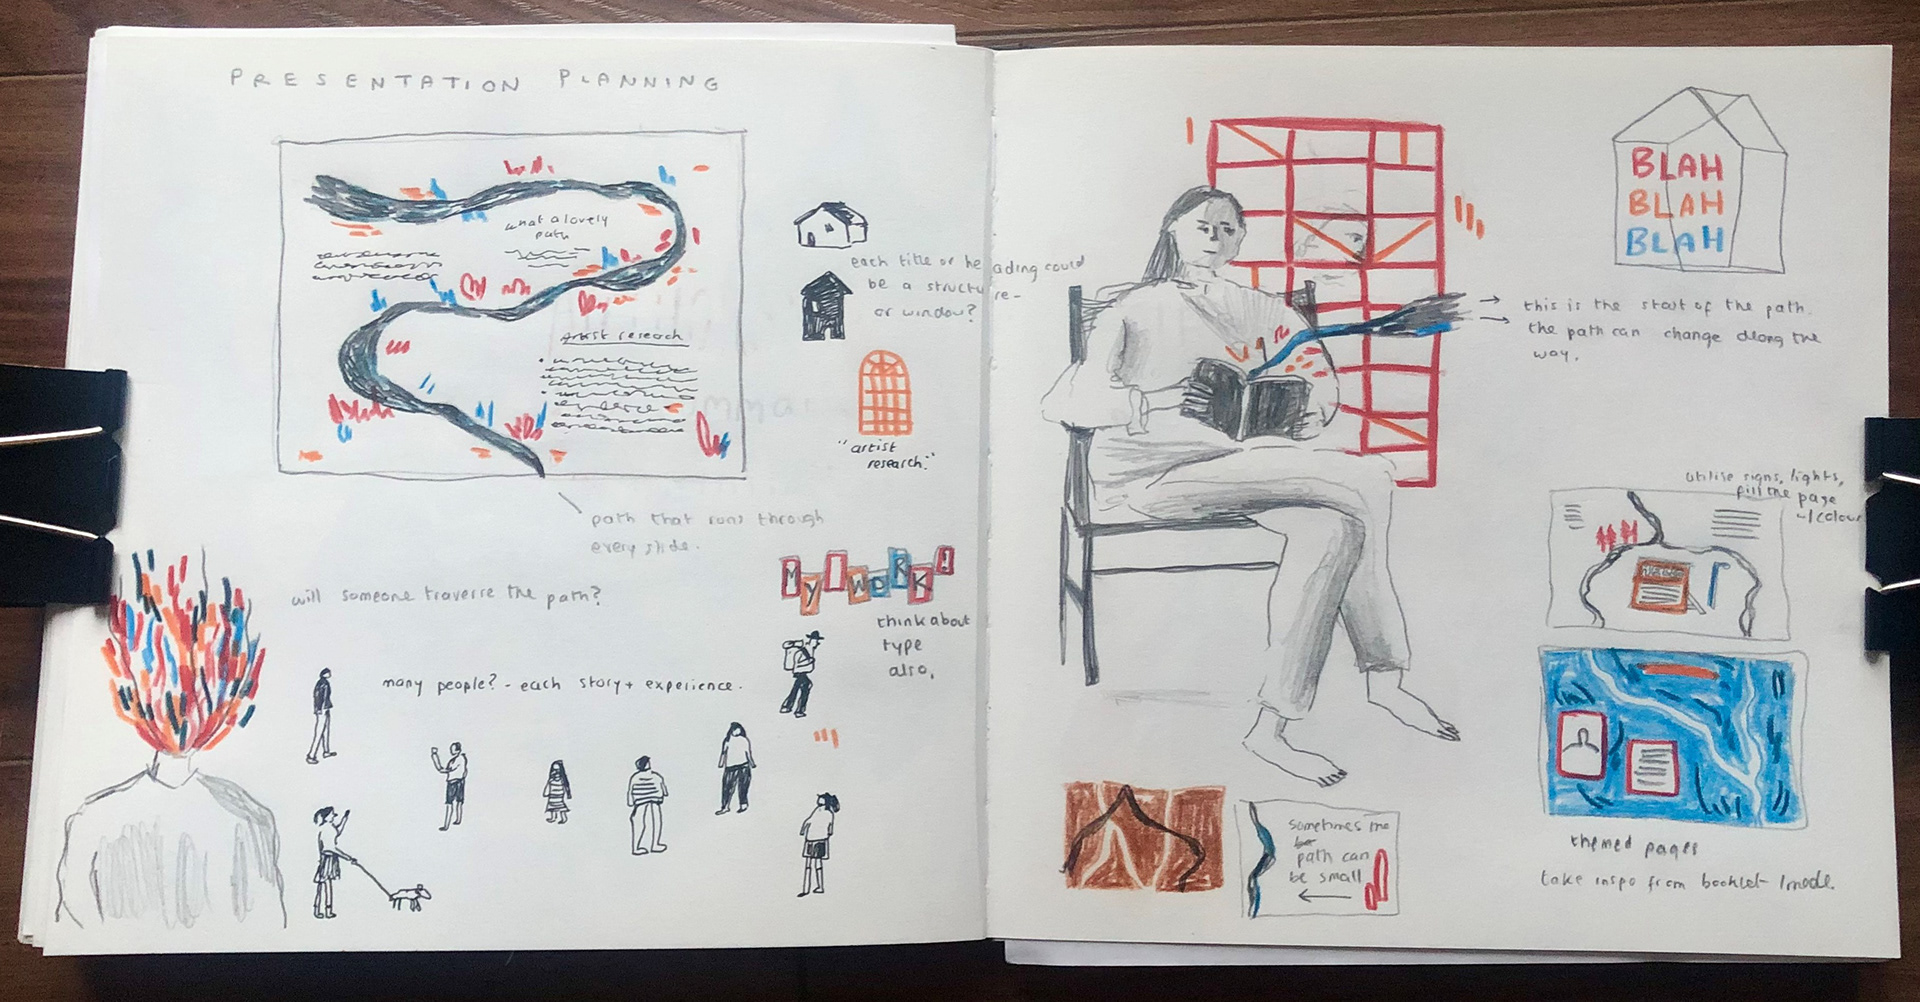 PRESENTATION PLANNING
what a lovely
path
Artist research
each title or heading could
be a structure -
or window?
"artist
research."
path that runs through
every slide.
will someone traverse the path?
MY WORK!
think about
type
also.
many people? - each story + experience.
BLAH
BLAH
BLAH
this is the start of the path.
the path can change along the
way.
utilise signs, lights,
fill the page
colour
sometimes the
path can
be small
themed pages
take inspo from booklet